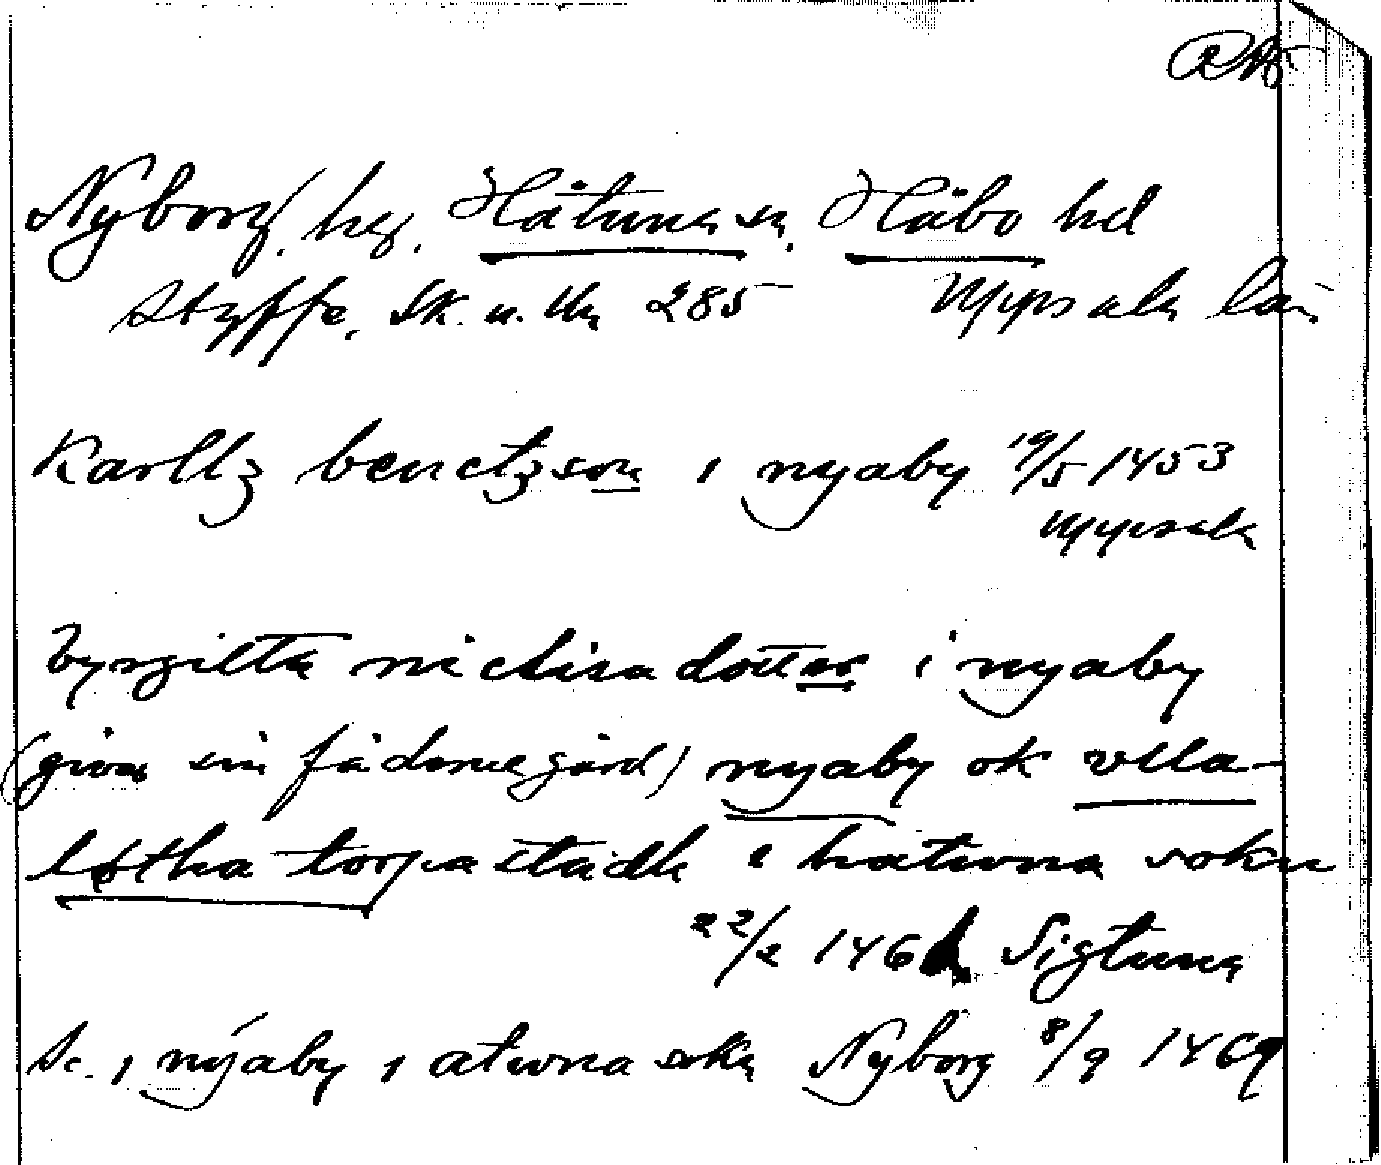 RAp
Nyborg, hg. Håtuna sn, Håbo hd
Styffe, Sk. u. Un 285 Uppsala län
Karllz benctzson i nyaby 19/5 1453
Uppsala
byrgitta niclisa dotter i nyaby
(giva sin fädernegård) nyaby ok vlla-
løtha torpa stadh i hatwna sokn
22/2 146 Sigtuna
Sc. i nýaby i atwna sokn Nyborg 8/9 1469